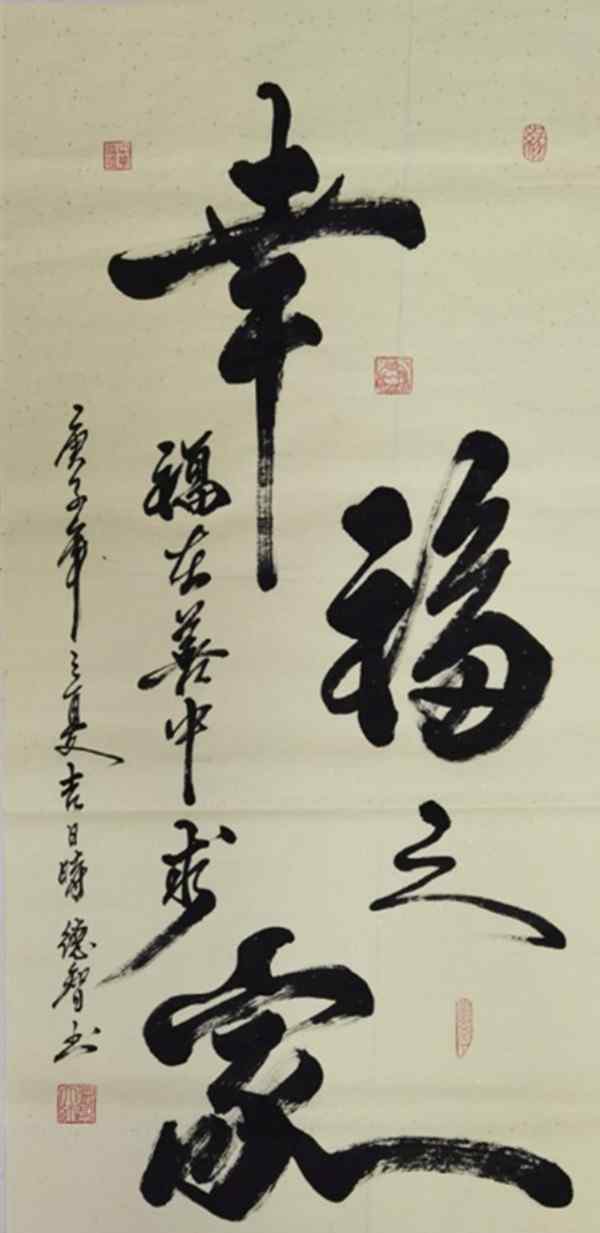 幸福之家
福在善中求
庚子年之夏吉日晴 德智书